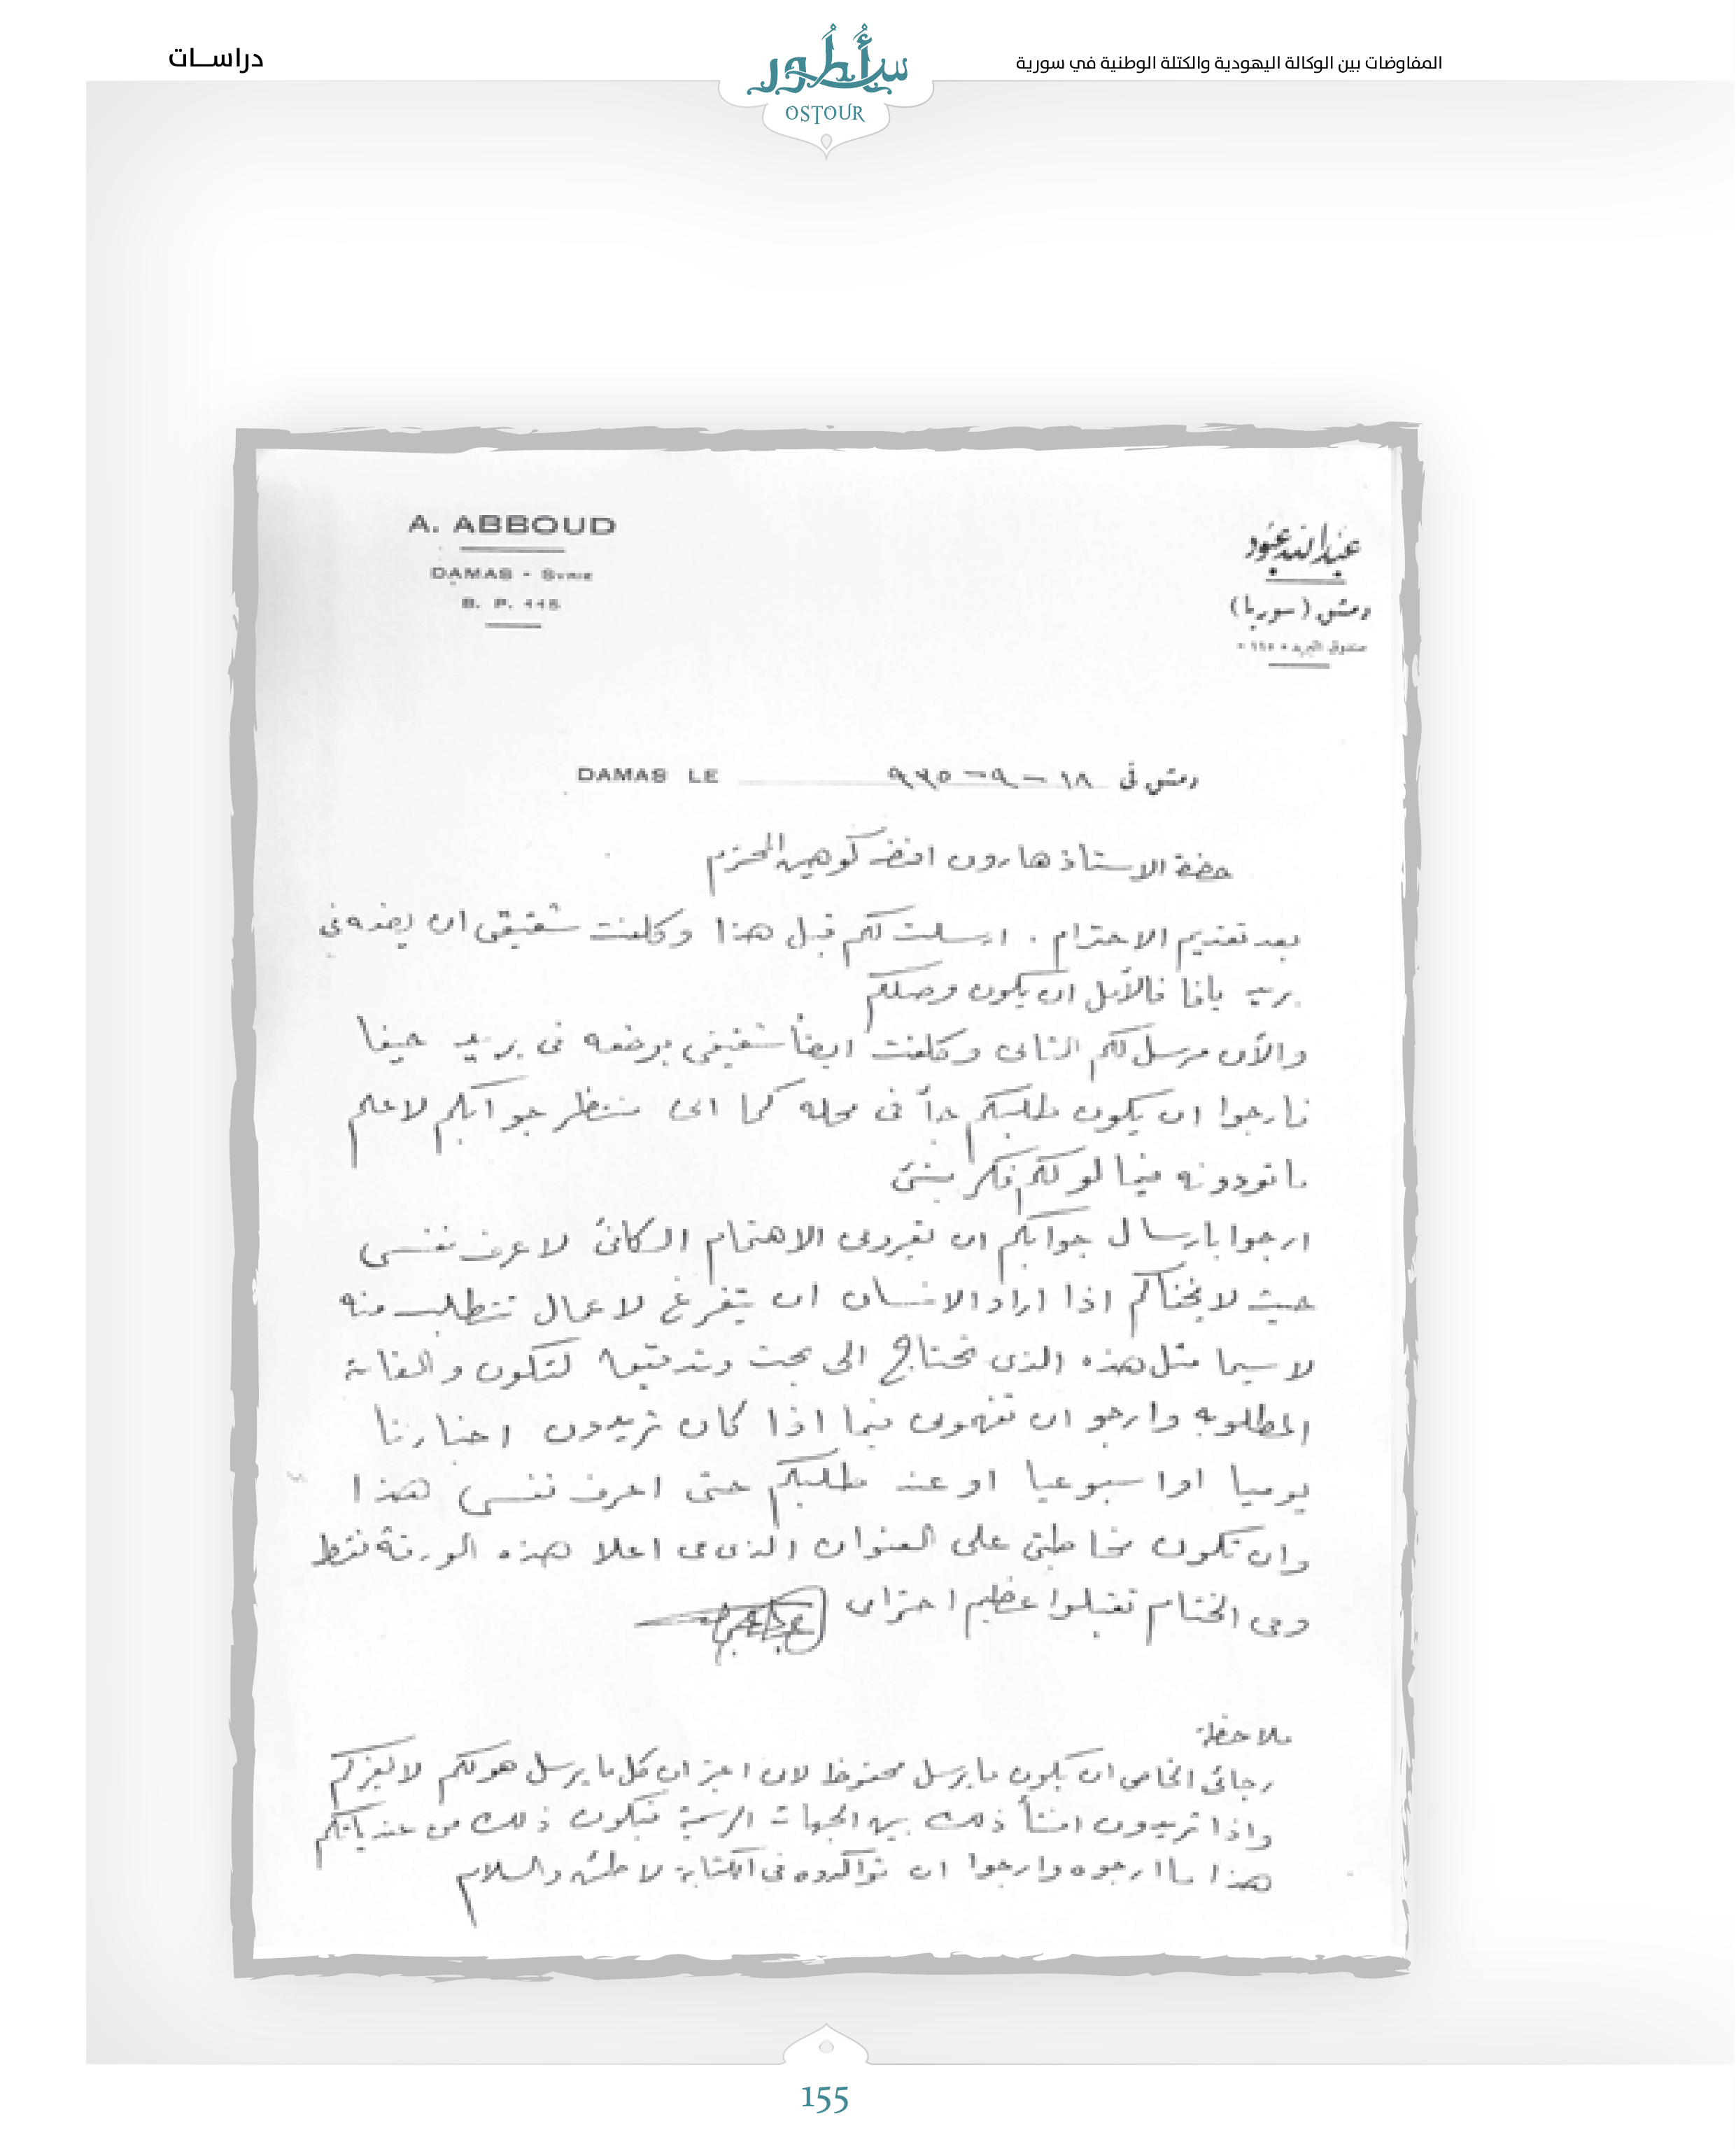 المفاوضات بين الوكالة اليهودية والكتلة الوطنية في سورية
أسطور
OSTOUR
دراســات
عبدالله عبود
دمشق (سوريا)
صندوق البريد ١١٥
A. ABBOUD
DAMAS - Syrie
B. P. 115
دمشق في ١٨ - ٩ - ٩٣٥ DAMAS LE
حضرة الاستاذ هارون افندي كوهين المحترم
بعد تقديم الاحترام . ارسلت لكم قبل هذا وكلفت شقيقي ان يضعه في
بريد يافا فالأمل ان يكون وصلكم
والأن مرسل لكم الثاني وكلفت ايضاً شقيقي بوضعه في بريد حيفا
فارجوا ان يكون طلبكم جداً في محله كما اني منتظر جوابكم لاعلم
ما تودونه فيما لو لكم فكر بشئ
ارجوا بارسال جوابكم ان تعيروني الاهتمام الكافئ لاعرف نفسي
حيث لا يخفاكم اذا اراد الانسان ان يتفرغ لاعمال تتطلب منه
لا سيما مثل هذه الذي تحتاج الى بحث وتدقيق لتكون والغاية
المطلوبه وارجو ان تفهموني فيما اذا كان تريدون اخبارنا
يوميا او اسبوعيا او عند طلبكم حتى اعرف نفسي هذا
وان تكون مخاطبتي على العنوان الذي في اعلا هذه الورقة فقط
وفي الختام تقبلوا عظيم احترامي
ملاحظة
رجائي الخاص ان يكون ما يرسل محفوظ لان اعتبر ان كل ما يرسل هو لكم لا لغيركم
واذا تريدون افشأ ذلك بين الجهات الرسمية فيكون ذلك من عندياتكم
هذا ما ارجوه وارجوا ان تؤاكدوه في الكتابة لاطمئن والسلام
155